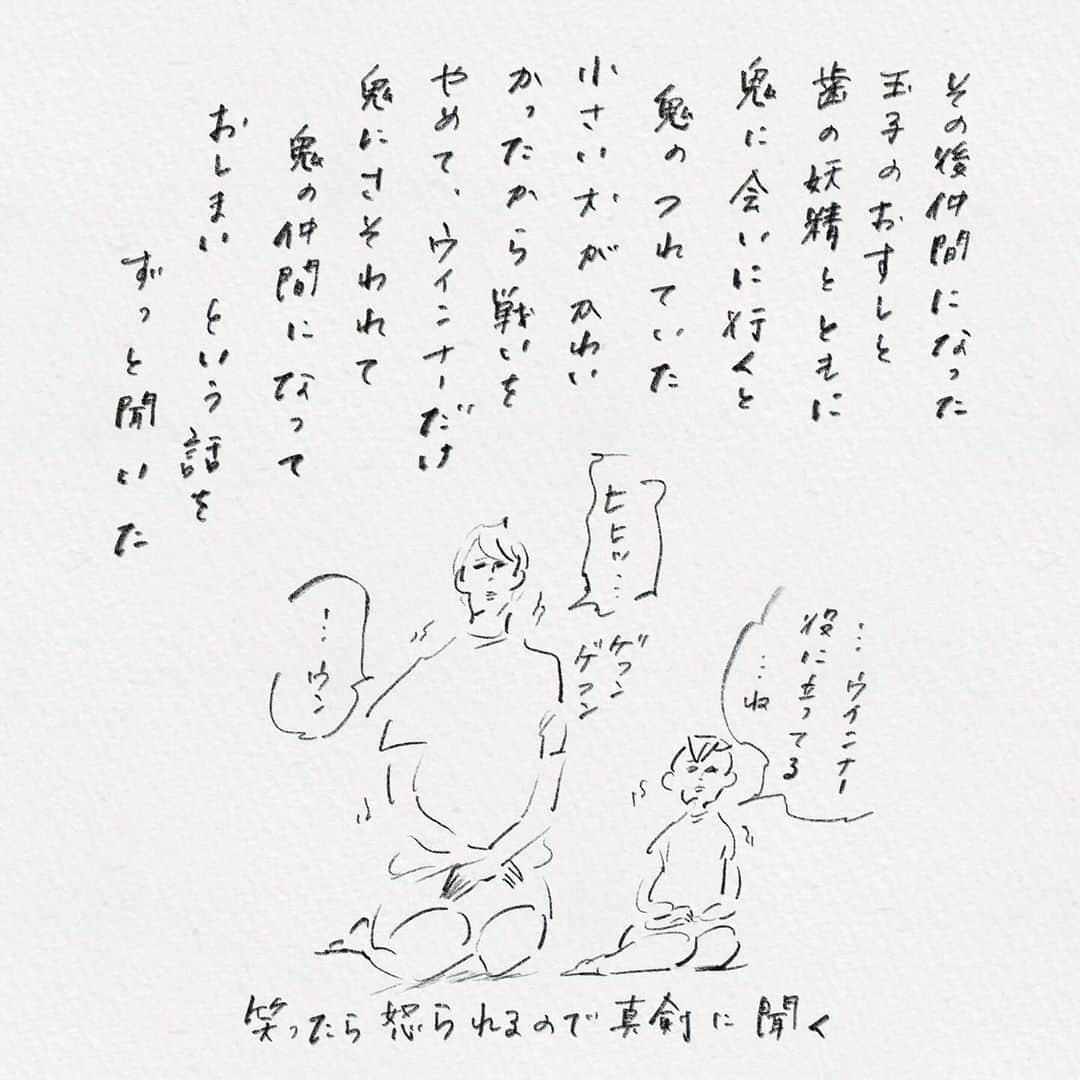 その後仲間になった
玉子のおすしと
歯の妖精とともに
鬼に会いに行くと
鬼のつれていた
小さい犬がかわい
かったから戦いを
やめて、ウインナーだけ
鬼にさそわれて
鬼の仲間になって
おしまい という話を
ずっと聞いた
ヒヒッ…
ゲフン
ゲフン
…ウン
…ウインナー
役に立ってる
…ね
笑ったら怒られるので真剣に聞く